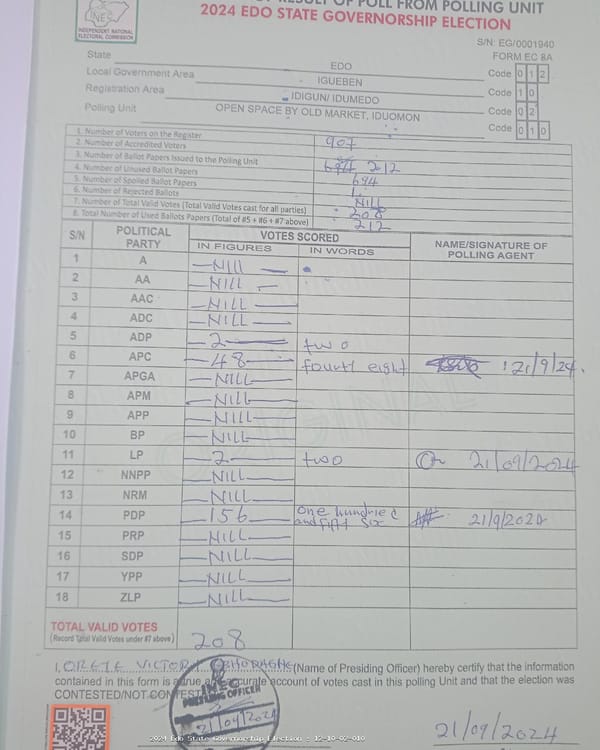 RESULT OF POLL FROM POLLING UNIT
2024 EDO STATE GOVERNORSHIP ELECTION
INEC
INDEPENDENT NATIONAL ELECTORAL COMMISSION
S/N: EG/0001940
FORM EC 8A
State EDO Code 0 1 2
Local Government Area IGUEBEN Code 1 0
Registration Area IDIGUN/ IDUMEDO Code 0 2
Polling Unit OPEN SPACE BY OLD MARKET, IDUOMON Code 0 1 0
1. Number of Voters on the Register 907
2. Number of Accredited Voters
3. Number of Ballot Papers Issued to the Polling Unit 212
4. Number of Unused Ballot Papers 694
5. Number of Spoiled Ballot Papers
6. Number of Rejected Ballots NILL
7. Number of Total Valid Votes (Total Valid Votes cast for all parties) 208
8. Total Number of Used Ballots Papers (Total of #5 + #6 + #7 above) 212
S/N POLITICAL PARTY VOTES SCORED NAME/SIGNATURE OF POLLING AGENT
IN FIGURES IN WORDS
1 A NILL
2 AA NILL
3 AAC NILL
4 ADC NILL
5 ADP 2 two
6 APC 48 fourty eight 21/9/24.
7 APGA NILL
8 APM NILL
9 APP NILL
10 BP NILL
11 LP 2 two 21/09/2024
12 NNPP NILL
13 NRM NILL
14 PDP 156 One hundred and fift six 21/9/2024
15 PRP NILL
16 SDP NILL
17 YPP NILL
18 ZLP NILL
TOTAL VALID VOTES
(Record Total Valid Votes under #7 above) 208
I, VICTOR (Name of Presiding Officer) hereby certify that the information
contained in this form is a true and accurate account of votes cast in this polling Unit and that the election was
CONTESTED/NOT CONTESTED
INEC
PRESIDING OFFICER
21/09/2024
2024 Edo State Governorship Election - 12-10-02-010
21/09/2024